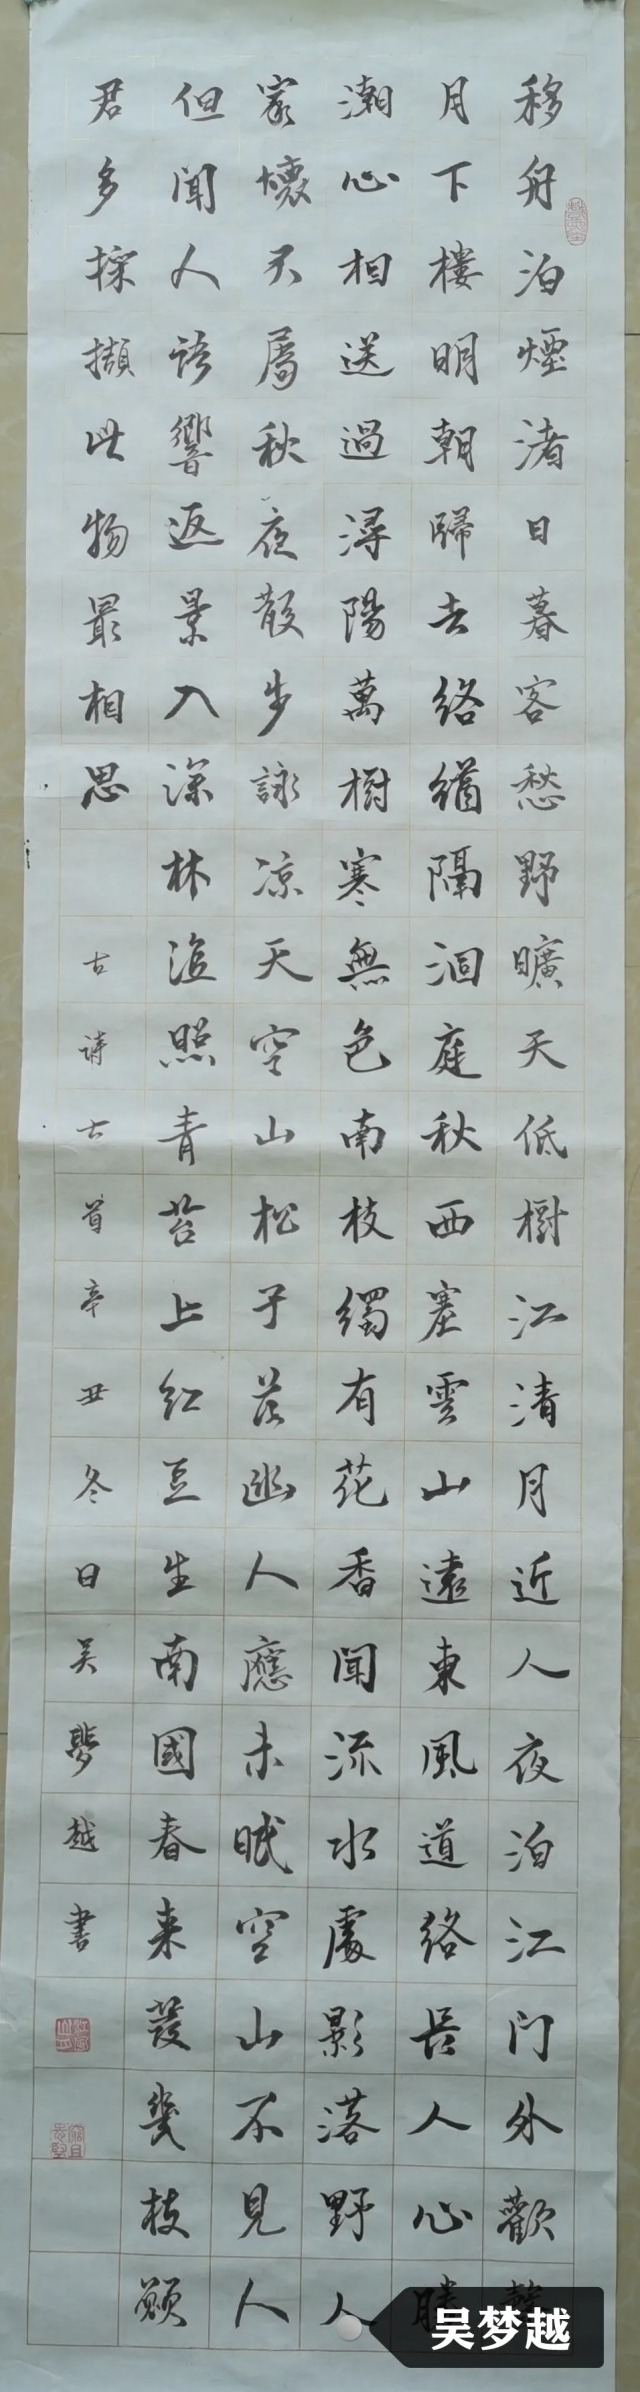 移舟泊煙渚日暮客愁野曠天低樹江清月近人夜泊江门外歡聲
月下樓明朝歸去路猶隔洞庭秋西塞雲山遠東風道路長人心勝
潮心相送過潯陽萬樹寒無色南枝獨有花香聞流水處影落野人
家懷君屬秋夜散步詠涼天空山松子落幽人應未眠空山不見人
但聞人語響返景入深林復照青苔上紅豆生南國春來發幾枝願
君多採擷此物最相思
古詩七首辛丑冬日吴夢越書
吴梦越